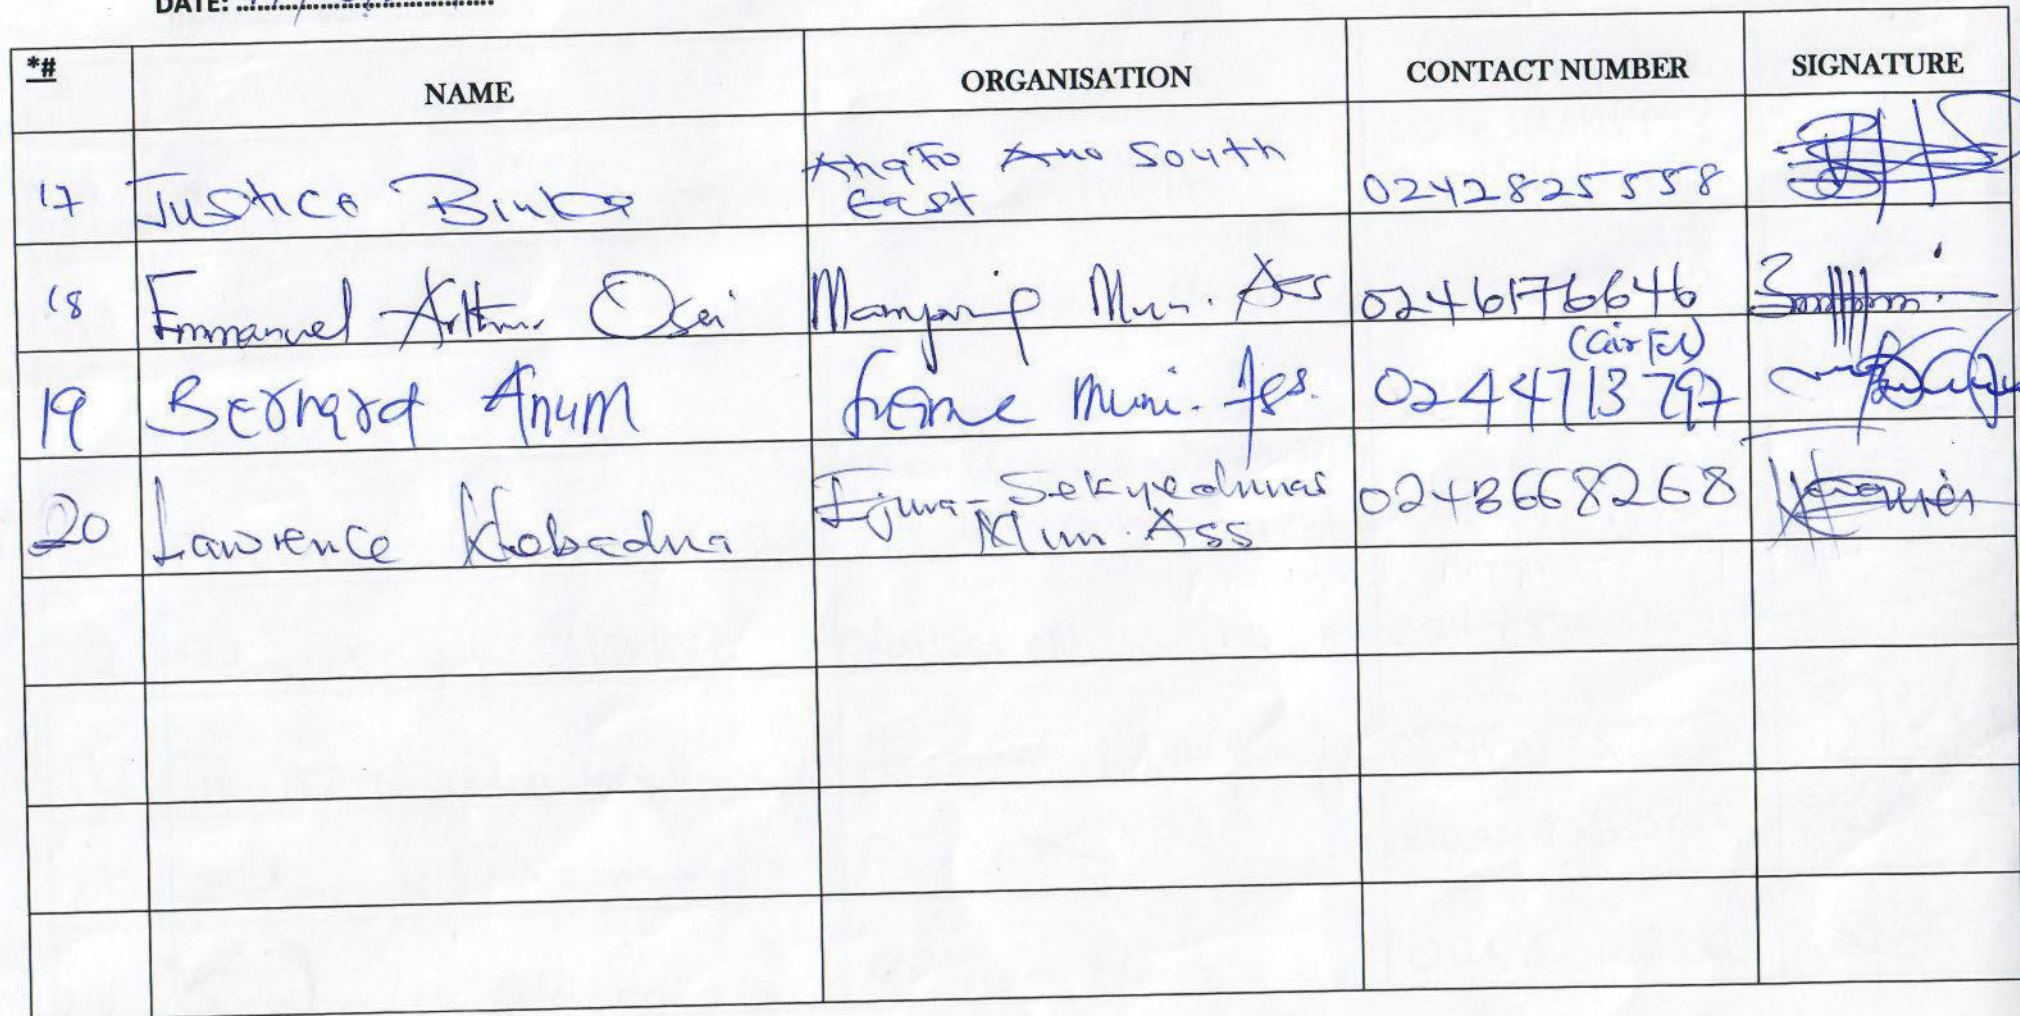 DATE:
*# NAME ORGANISATION CONTACT NUMBER SIGNATURE
17 Justice Ahafo Ano South
East 0242825558
18 Emmanuel Arthur Osei Mampong Mun. Ass 0246176646
(airtel)
19 Bernard Anum Muni. Ass. 0244713797
20 Lawrence Ejura-Sekyedumas
Mun. Ass 0243668268